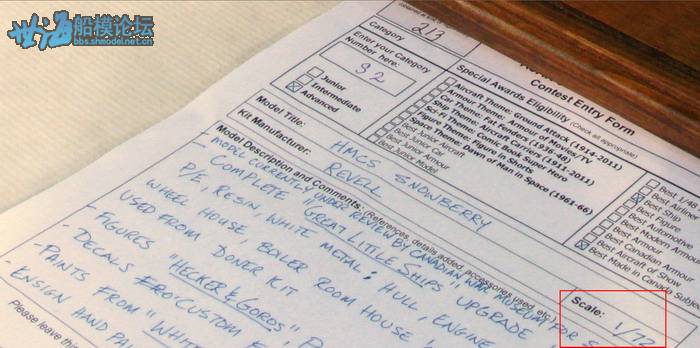 世海船模论坛
bbs.shmodel.net.cn
Contest Entry Form
Category
213
Enter your Category
Number here:
92
Junior
Intermediate
Advanced
Special Awards Eligibility (Check as appropriate)
Aircraft Theme: Ground Attack (1914-2011)
Armour Theme: Armour of Movies/TV
Car Theme: Fat Fenders (1936-48)
Ship Theme: Aircraft Carriers (1911-2011)
Sci-Fi Theme: Comic Book Super Hero
Figure Theme: Figure in Shorts
Space Theme: Dawn of Man in Space (1961-66)
Best Junior Aircraft
Best Junior Car
Best Junior Armour
Best Junior Model
Best 1/48
Best Airliner
Best Ship
Best Figure
Best Automotive
Best Modern Armour
Best Armour
Best Canadian
Best Aircraft of Show
Best Made in Canada Subject
Model Title:
HMCS SNOWBERRY
Kit Manufacturer:
REVELL
Scale:
1/72
Model Description and Comments: (References, details added, accessories used, etc.
- MODEL CURRENTLY UNDER REVIEW BY CANADIAN WAR MUSEUM FOR
- COMPLETE "GREAT LITTLE SHIPS" UPGRADE
P/E, RESIN, WHITE METAL; HULL, ENGINE
WHEEL HOUSE, BOILER ROOM HOUSE,
USED FROM DONER KIT
- FIGURES "HECKER & GOROS"
- DECALS CUSTOM
- PAINTS FROM "WHITE
- ENSIGN HAND
Please leave this